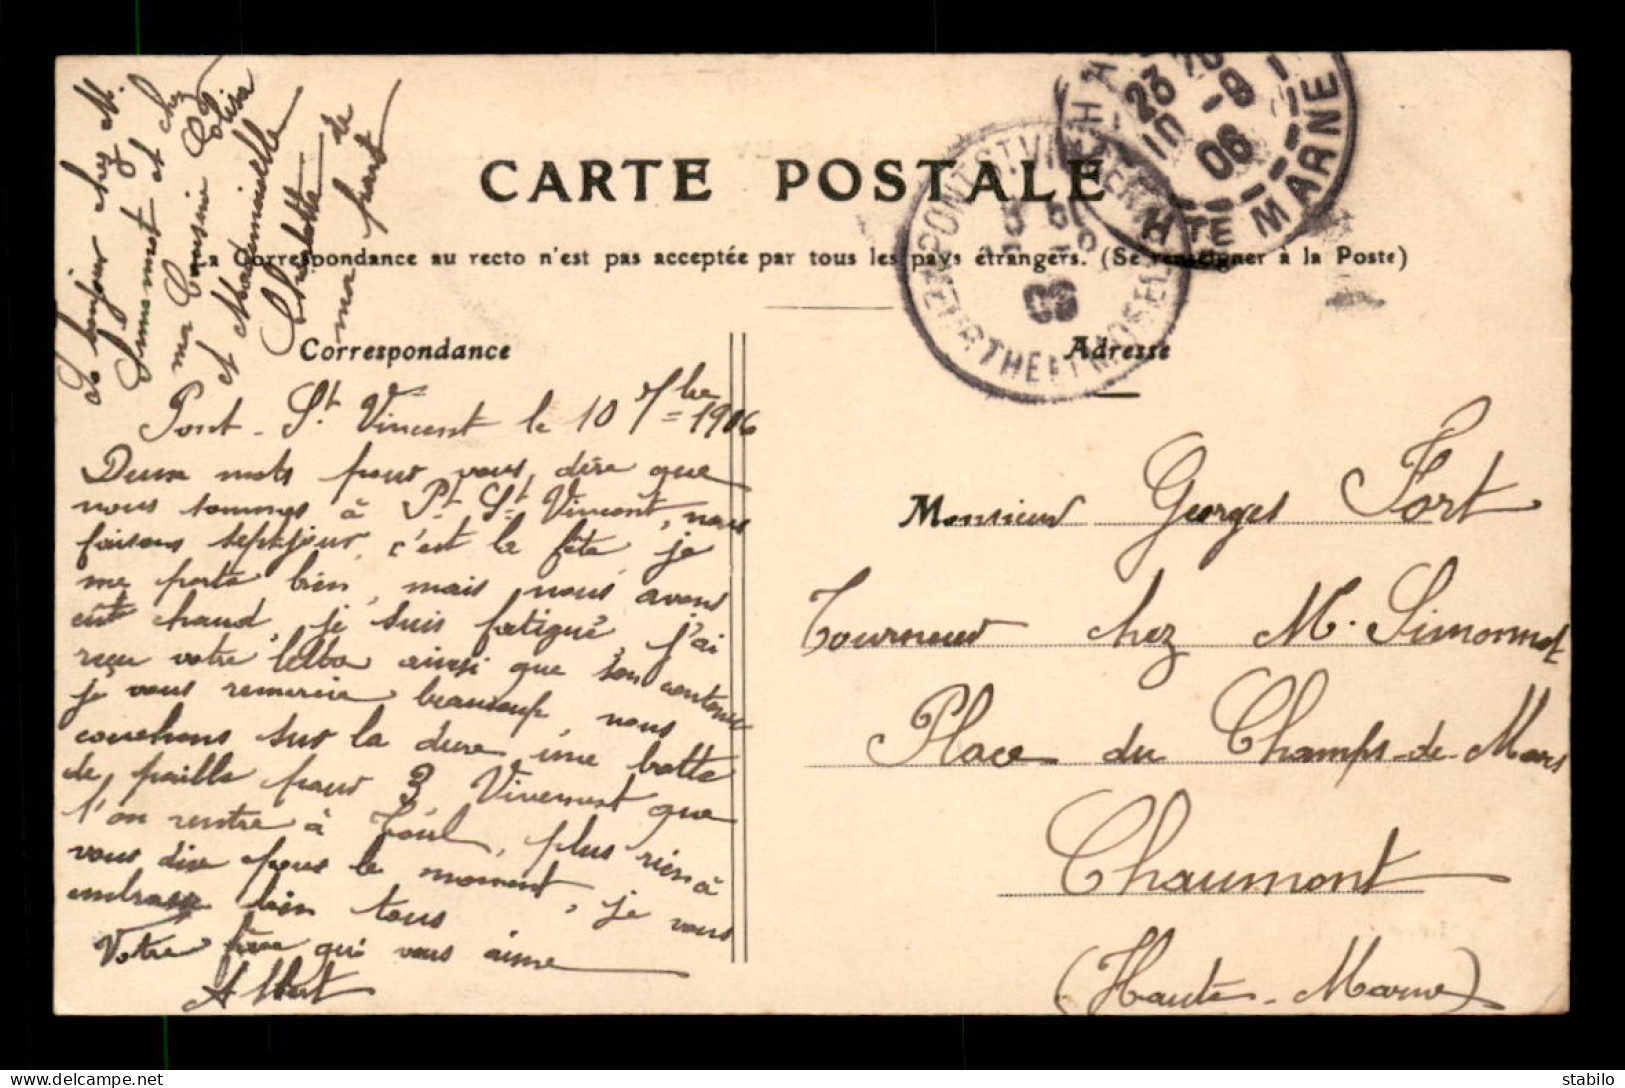 CARTE POSTALE
La Correspondance au recto n'est pas acceptée par tous les pays étrangers. (Se renseigner à la Poste)
Correspondance
Adresse
Le bonjour chez M.
Simonnot et chez
ma Cousine Loлisa
et Mademoiselle
Charlotte de
ma part
Pont-St Vincent le 10 7bre 1906
Deux mots pour vous dire que
nous sommes à Pt St Vincent, nous
faisons sept jour, c'est la fête, je
me porte bien, mais nous avons
eût chaud, je suis fatigué, j'ai
reçu votre lettre ainsi que son contenu
je vous remercie beaucoup, nous
couchons sur la dure, une botte
de paille pour 3. Vivement que
l'on rentre à Toul, plus rien à
vous dire pour le moment, je vous
embrasse bien tous
Votre frère qui vous aime
Albert
Monsieur Georges Fort
Tourneur chez M. Simonnot
Place du Champs-de-Mars
Chaumont
(Haute-Marne)
PONT-ST-VINCENT
MEURTHE ET MOSELLE
06
23
10 -9
06
HTE MARNE
© stabilo
delcampe.net